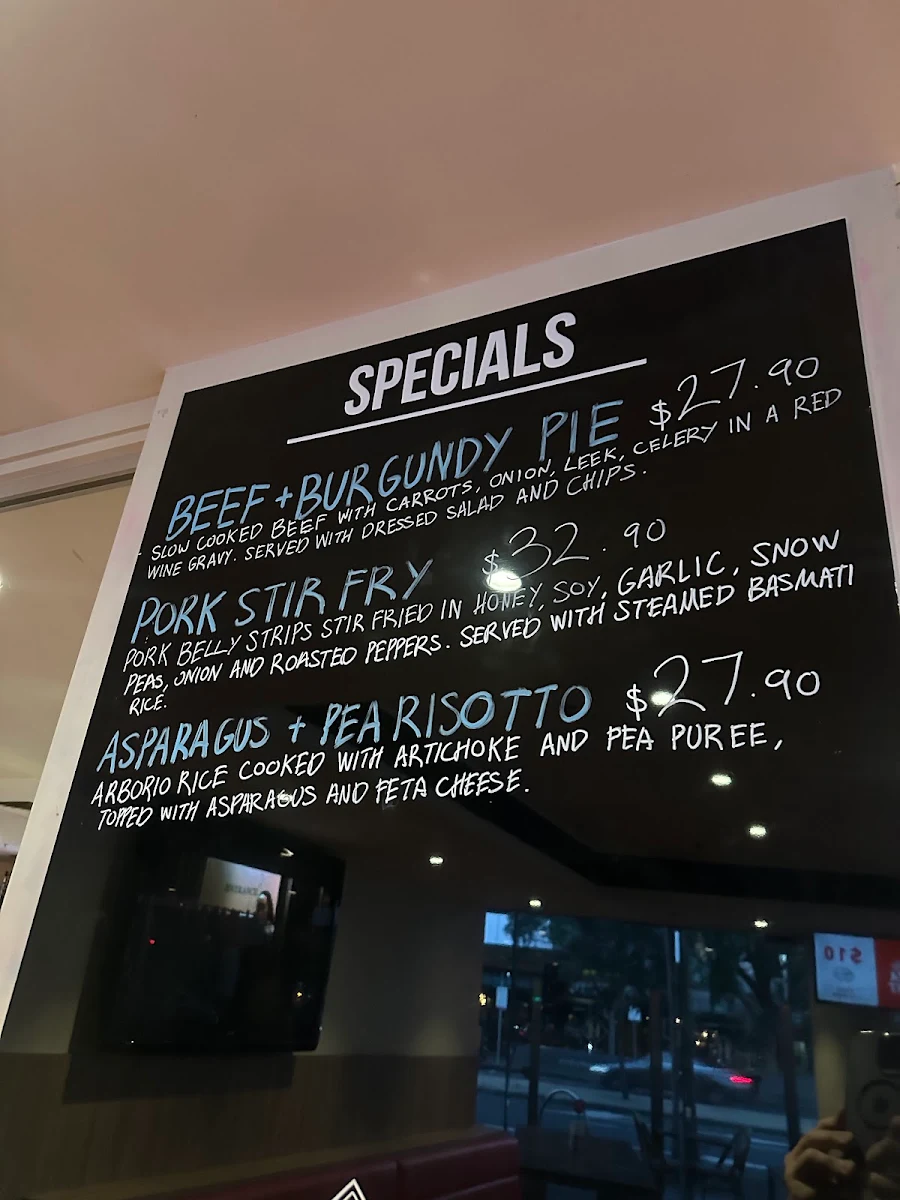 SPECIALS
BEEF + BURGUNDY PIE $27.90
SLOW COOKED BEEF WITH CARROTS, ONION, LEEK, CELERY IN A RED
WINE GRAVY. SERVED WITH DRESSED SALAD AND CHIPS.
PORK STIR FRY $32.90
PORK BELLY STRIPS STIR FRIED IN HONEY, SOY, GARLIC, SNOW
PEAS, ONION AND ROASTED PEPPERS. SERVED WITH STEAMED BASMATI
RICE.
ASPARAGUS + PEA RISOTTO $27.90
ARBORIO RICE COOKED WITH ARTICHOKE AND PEA PUREE,
TOPPED WITH ASPARAGUS AND FETA CHEESE.
$10